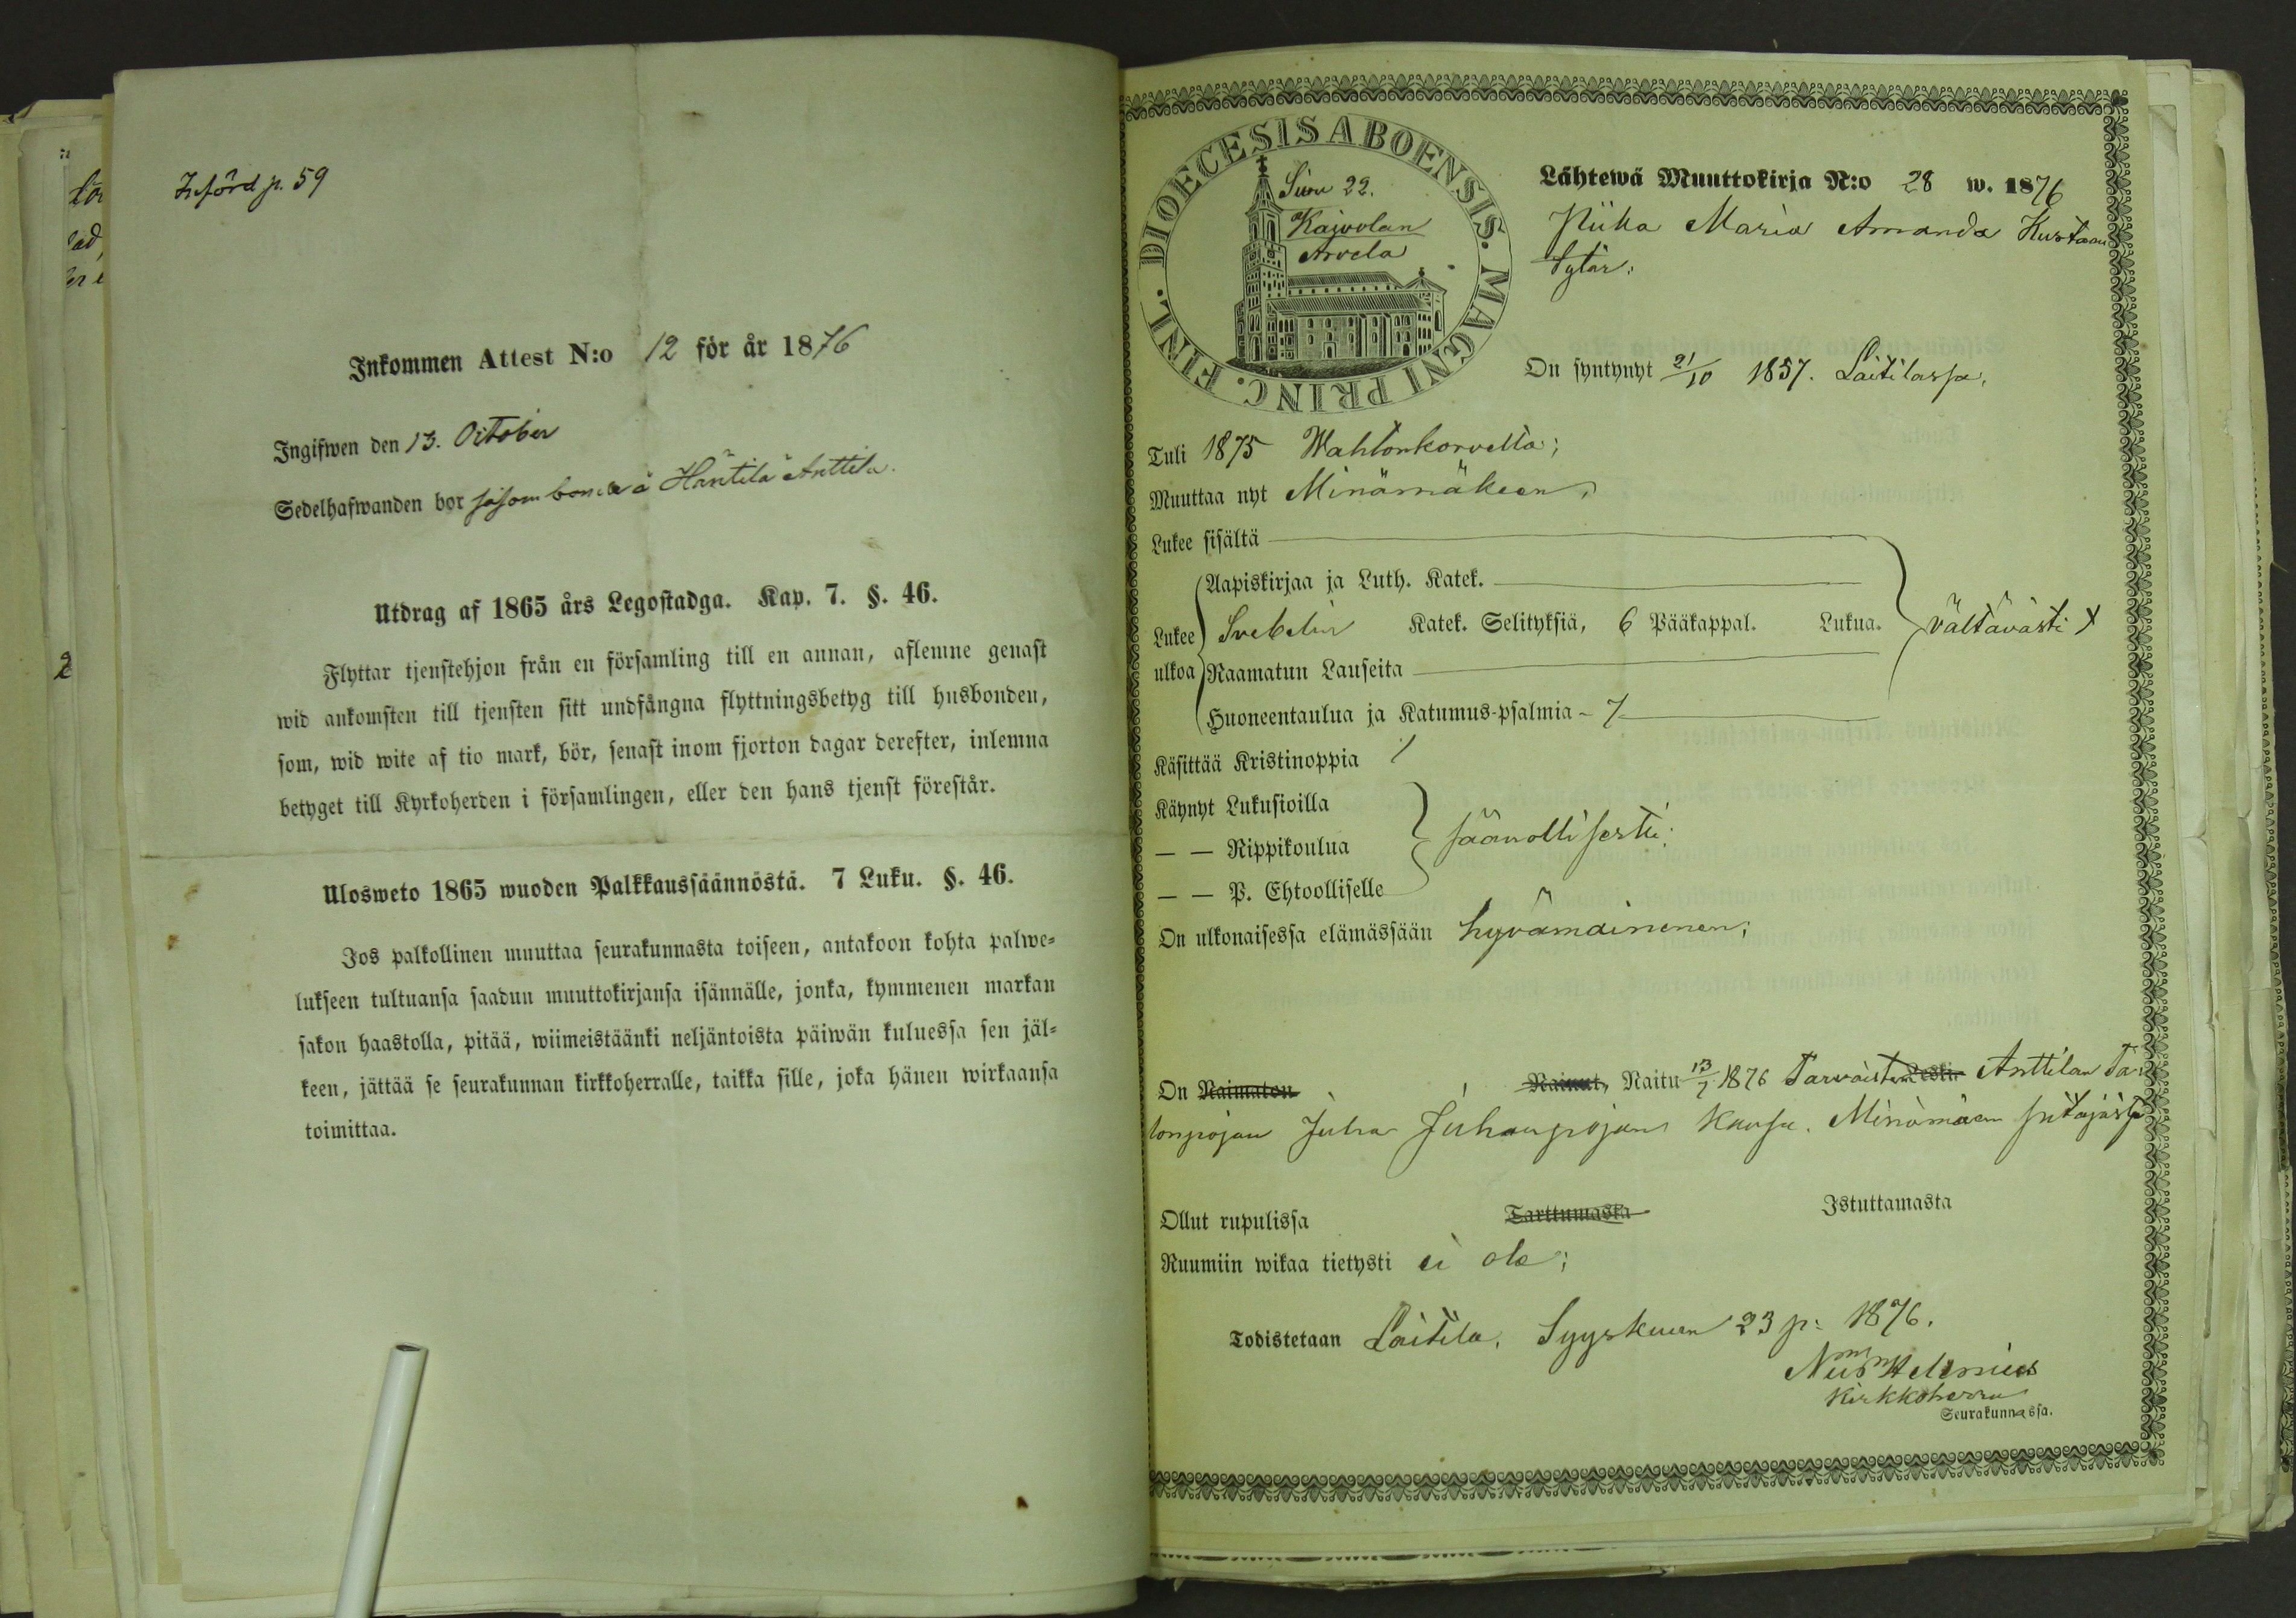 Införd p. 59
Inkommen Attest N:o 12 för år 1876
Ingifwen den 13. October
Sedelhafwanden bor såsom bonde å Häntilä Anttila.
Utdrag af 1865 års Legostadga. Kap. 7. §. 46.
Flyttar tjenstehjon från en församling till en annan, aflemne genast
wid ankomsten till tjensten sitt undfångna flyttningsbetyg till husbonden,
som, wid wite af tio mark, bör, senast inom fjorton dagar derefter, inlemna
betyget till Kyrkoherden i församlingen, eller den hans tjenst förestår.
Ulosweto 1865 wuoden Palkkaussäännöstä. 7 Luku. §. 46.
Jos palkollinen muuttaa seurakunnasta toiseen, antakoon kohta palwe-
lukseen tultuansa saadun muuttokirjansa isännälle, jonka, kymmenen markan
sakon haastolla, pitää, wiimeistäänki neljäntoista päiwän kuluessa sen jäl-
keen, jättää se seurakunnan kirkkoherralle, taikka sille, joka hänen wirkaansa
toimittaa.
DIOECESIS ABOENSIS. MAGNI PRINC. FINL.
Siwu 22.
Kaivolan
Arvela
Lähtewä Muuttokirja N:o 28 w. 1876
Piika Maria Amanda Kustaan
tytär;
On syntynyt 21/10 1857. Laitilassa.
Tuli 1875 Wahtonkorvelta;
Muuttaa nyt Minämäkeen,
Lukee sisältä
Aapiskirjaa ja Luth. Katek.
Lukee Svebelin Katek. Selityksiä, 6 Pääkappal. Lukua. välttävästi x
ulkoa Raamatun Lauseita
Huoneentaulua ja Katumus-psalmia - 7
Käsittää Kristinoppia /
Käynyt Lukusioilla
— — Rippikoulua säänöllisesti;
— — P. Ehtoolliselle
On ulkonaisessa elämässään hyvämaineinen;
On Naimaton Nainut, Naitu 13/7 1876 Leski Anttilan ta-
lonpojan Juha Juhanpojan kansa. Minämäen pitäjästä
Ollut rupulissa Tarttumasta Istuttamasta
Ruumiin wikaa tietysti ei ole;
Todistetaan Laitila. Syyskuun 23 p: 1876.
Helenius
Kirkkoherra
Seurakunnassa.